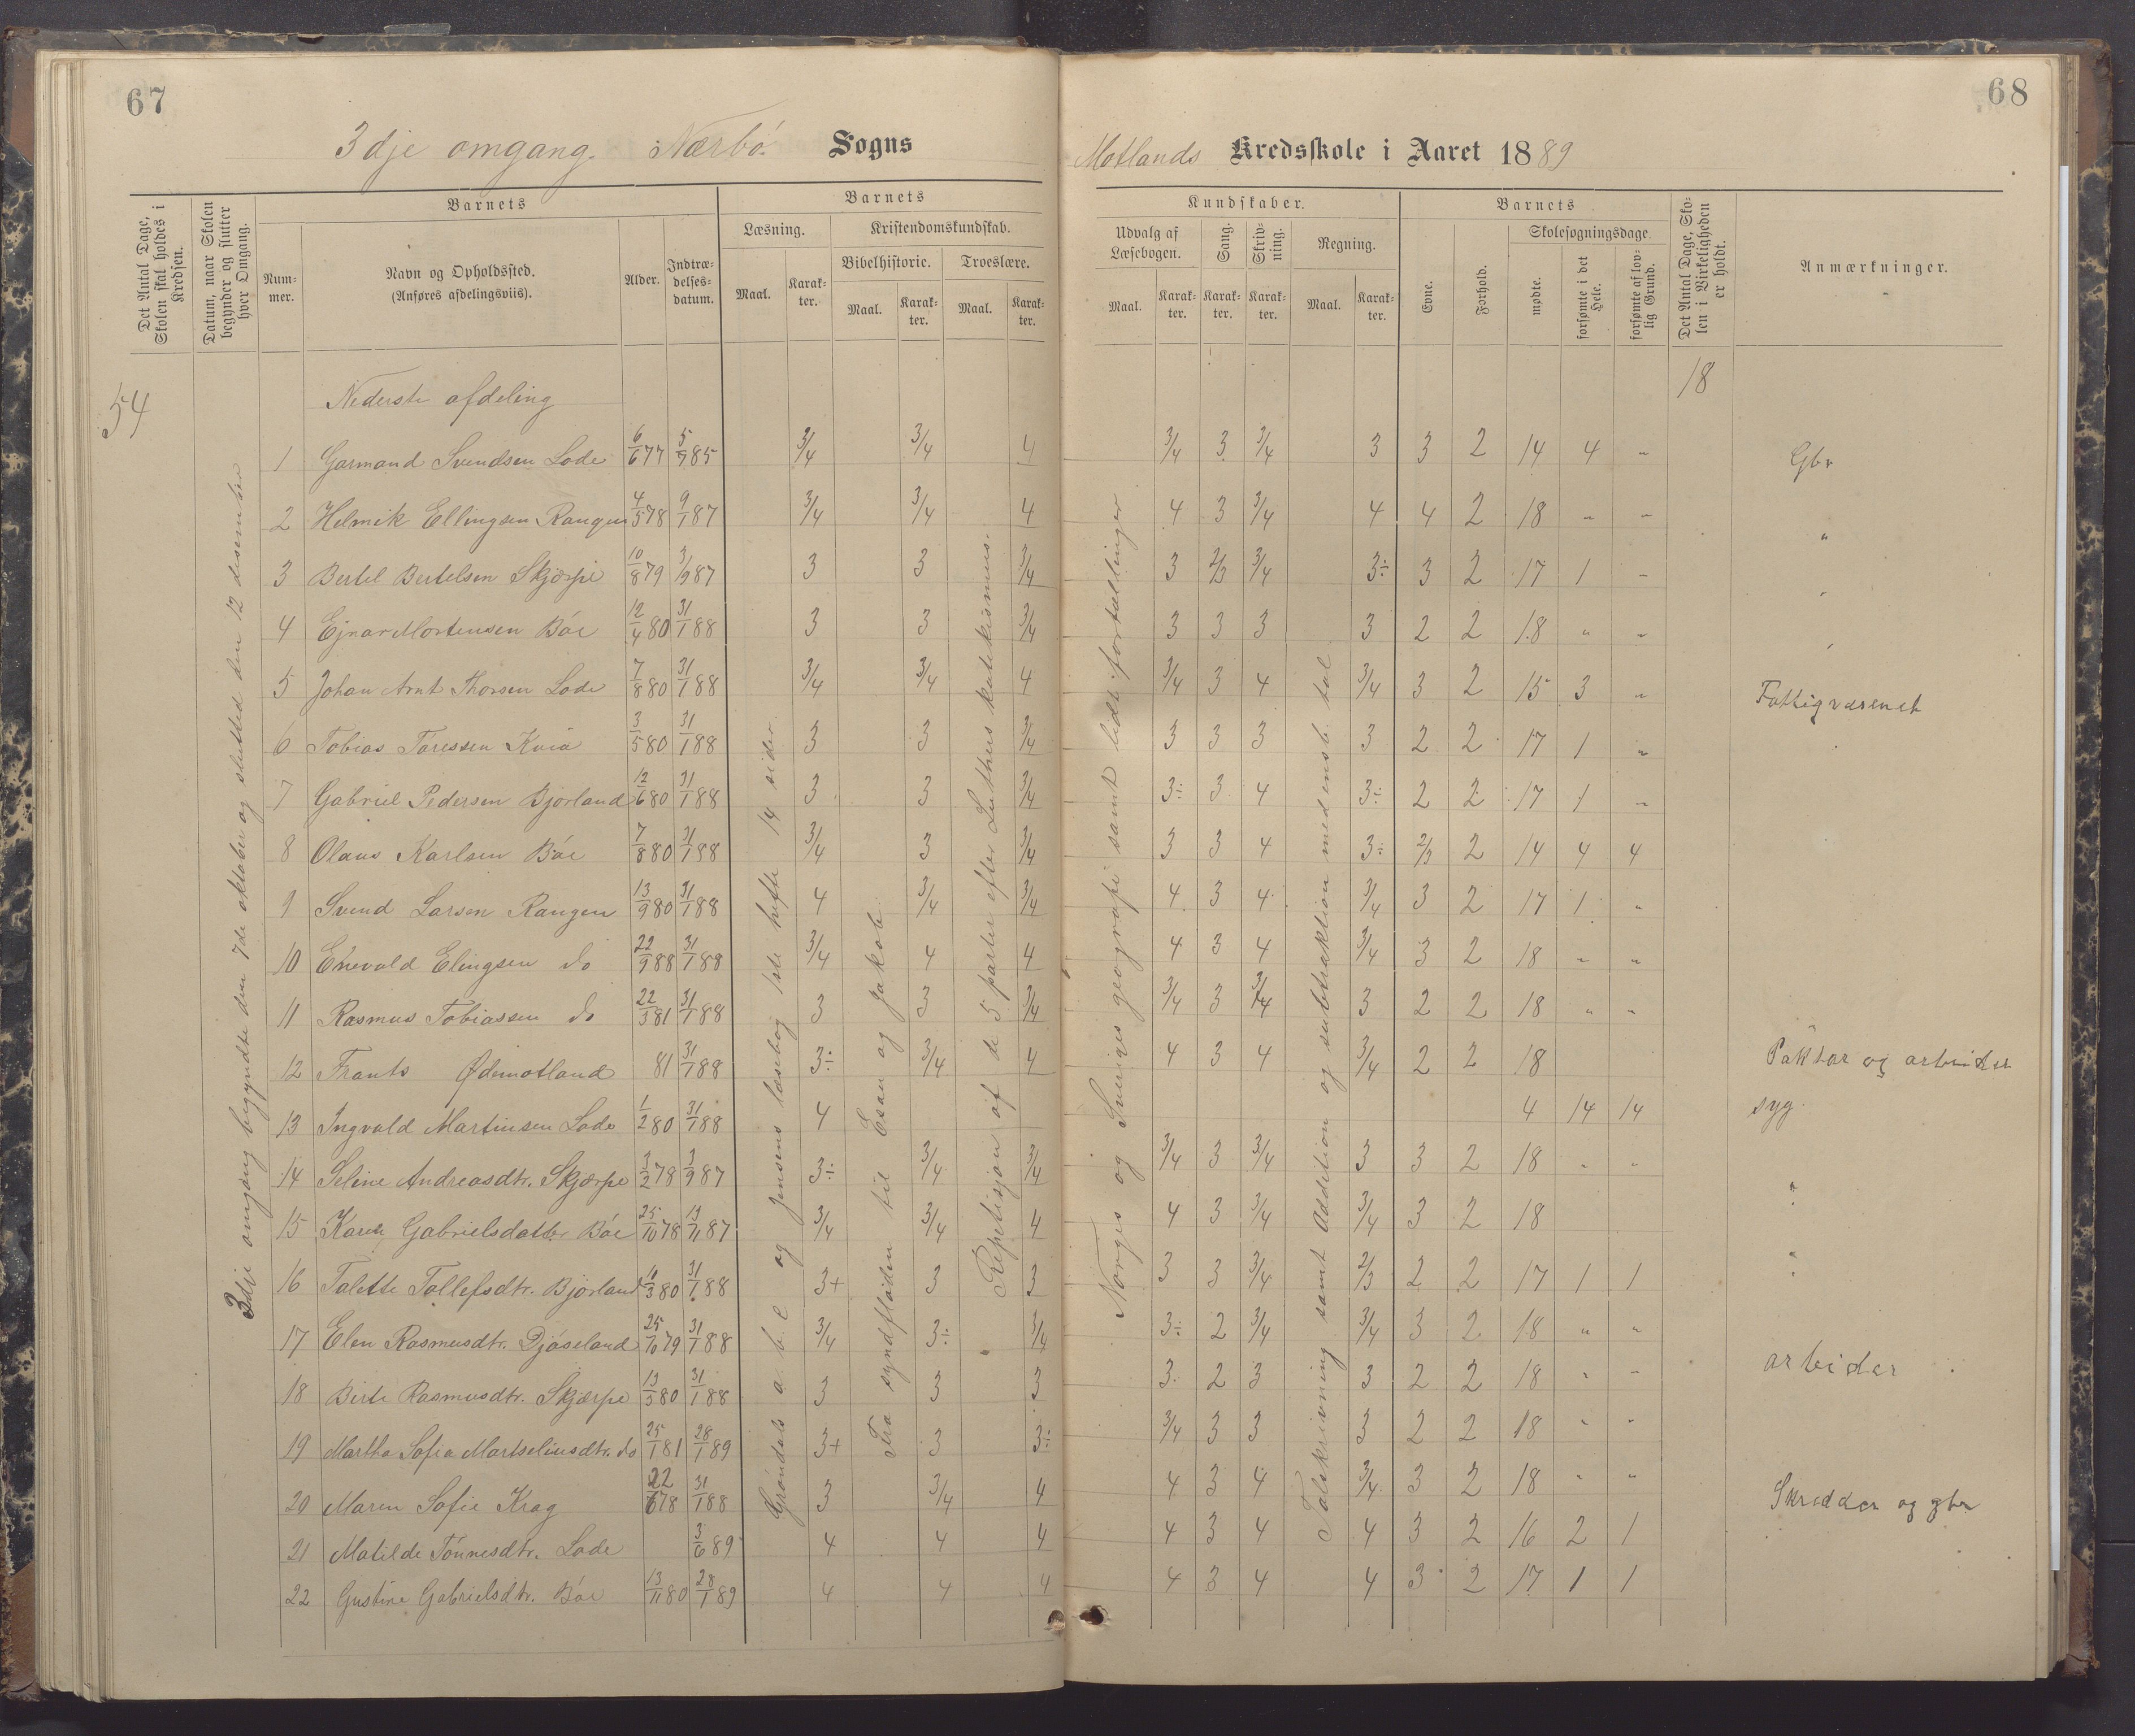 67
68
3dje omgang. Nærbö. Sogns
Motlands Kredsskole i Aaret 1889
Det Antal Dage, Skolen skal holdes i Kredsen.
Datum, naar Skolen begynder og slutter hver Omgang.
Barnets
Nummer.
Navn og Opholdssted.
(Anføres afdelingsviis).
Alder.
Indtrædelsesdatum.
Barnets
Læsning.
Maal.
Karakter.
Kristendomskundskab.
Bibelhistorie.
Maal.
Karakter.
Troeslære.
Maal.
Karakter.
Kundskaber.
Udvalg af Læsebogen.
Maal.
Karakter.
Sang.
Karakter.
Skrivning.
Karakter.
Regning.
Maal.
Karakter.
Barnets
Evne.
Forhold.
Skolesøgningsdage.
mødte.
forsømte i det Hele.
forsømte af lovlig Grund.
Det Antal Dage, Skolen i Virkeligheden er holdt.
Anmærkninger.
54
Nederste afdeling
18
3dje omgang begyndte den 7de oktober og slutted den 12 desember
Gröndals a b c og Jensens læsebog 1ste hefte 14 sider
Fra syndfloden til Esau og Jakob.
Repetisjon af de 5 parter efter Luthers katekismus.
Norges og Sveriges geografi samt lidt fortællinger
Talskrivning samt Addition og subtraktion med ensb. tal
1 Garmand Svendsen Lode 6/6 77 5/9 85 3/4 3/4 4 3/4 3 3/4 3 3 2 14 4 " Gbr
2 Helmik Ellingsen Rangen 4/5 78 9/1 87 3/4 3/4 4 4 3 3/4 4 4 2 18 " " "
3 Bertel Bertelsen Skjærpe 10/8 79 3/9 87 3 3 3/4 3 2/3 3/4 3÷ 3 2 17 1 "
4 Ejnar Mortensen Böe 12/4 80 31/1 88 3 3 3/4 3 3 3 3 2 2 18 " "
5 Johan Arnt Thorsen Lode 7/8 80 31/1 88 3/4 3/4 4 3/4 3 4 3/4 3 2 15 3 " Fattigvæsenet
6 Tobias Taressen Kvia 3/5 80 31/1 88 3 3 3/4 3 3 3 3 2 2 17 1 "
7 Gabriel Pedersen Bjorland 12/6 80 31/1 88 3 3 3/4 3÷ 3 4 3÷ 2 2 17 1 "
8 Olaus Karlsen Böe 7/8 80 31/1 88 3/4 3 3/4 3 3 4 3÷ 2/3 2 14 4 4
9 Svend Larsen Rangen 13/9 80 31/1 88 4 3/4 3/4 4 3 4 3/4 3 2 17 1 "
10 Enevald Elingsen do 22/9 88 31/1 88 3/4 4 4 4 3 4 3/4 3 2 18 " "
11 Rasmus Tobiassen do 22/5 81 31/1 88 3 3 3/4 3/4 3 3/4 3 2 2 18 " "
12 Frants Ødemotland 81 31/1 88 3÷ 3/4 4 4 3 4 3/4 2 2 18 Paktar og arbeider
13 Ingvald Martinsen Lode 1/2 80 31/1 88 4 4 14 14 syg.
14 Seline Andreasdtr. Skjærpe 3/2 78 3/9 87 3÷ 3/4 3/4 3/4 3 3/4 3 3 2 18 " "
15 Karen Gabrielsdatter Böe 25/10 78 13/11 87 3/4 3/4 4 4 3 3/4 3/4 3 2 18
16 Talette Tollefsdtr. Bjorland 11/3 80 31/1 88 3+ 3 3 3 3 3/4 2/3 2 2 17 1 1
17 Elen Rasmusdtr. Djøseland 25/10 79 31/1 88 3/4 3÷ 3/4 3÷ 2 3/4 3/4 3 2 18 " "
18 Birte Rasmusdtr. Skjærpe 13/5 80 31/1 88 3 3 3 3 2 3 3 2 2 18 " " arbeider
19 Martha Sofia Martseliusdtr. do 25/1 81 28/1 89 3+ 3 3÷ 3/4 3 3 3 2 2 18 " "
20 Maren Sofie Krag 22/6 78 31/1 88 3 3/4 4 4 3 4 3/4 3 2 18 " " Skredder og gbr
21 Matilde Tönnesdtr. Lode 3/6 89 4 4 4 4 3 4 4 3 2 16 2 1
22 Gustine Gabrielsdtr. Böe 13/11 80 28/1 89 4 4 4 4 3 4 4 3 2 17 1 1